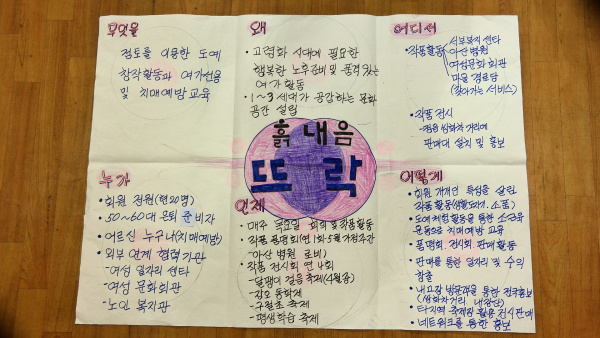 무엇을
점토를 이용한 도예
창작활동과 여가선용
및 치매예방 교육
왜
• 고령화 시대에 필요한
행복한 노후준비 및 품격있는
여가 활동
• 1~3세대가 공감하는 문화
공간 설립
어디서
• 작품활동
서부복지센타
아산병원
여성문화회관
마을 경로당
(찾아가는 서비스)
• 작품 전시
판매대 설치 및 홍보
흙내음
뜨락
누가
• 회원 전원(현20명)
• 50~60대 은퇴 준비자
• 어르신 누구나(치매예방)
• 외부 연계 협력기관
-여성 일자리 센타
-여성 문화회관
-노인 복지관
언제
• 매주 목요일 회의 및 작품활동
• 작품 품평회(연1회 5월 가정주간)
-아산 병원 로비)
• 작품 전시회 연4회
-달팽이 걸음 축제(4월)
-단오 동학제
-구절초 축제
-평생학습 축제
어떻게
• 회원 개개인 특성을 살린
작품활동(생활도자기, 소품)
• 도예체험활동을 통한 소근육
운동으로 치매예방 교육
• 품평회, 전시회 판매활동
• 판매를 통한 일자리 및 수익
창출
• 내고장 방문객을 통한 전국홍보
(쌍화차거리, 내장산)
• 타지역 축제장 활용 전시판매
• 네트워크를 통한 홍보